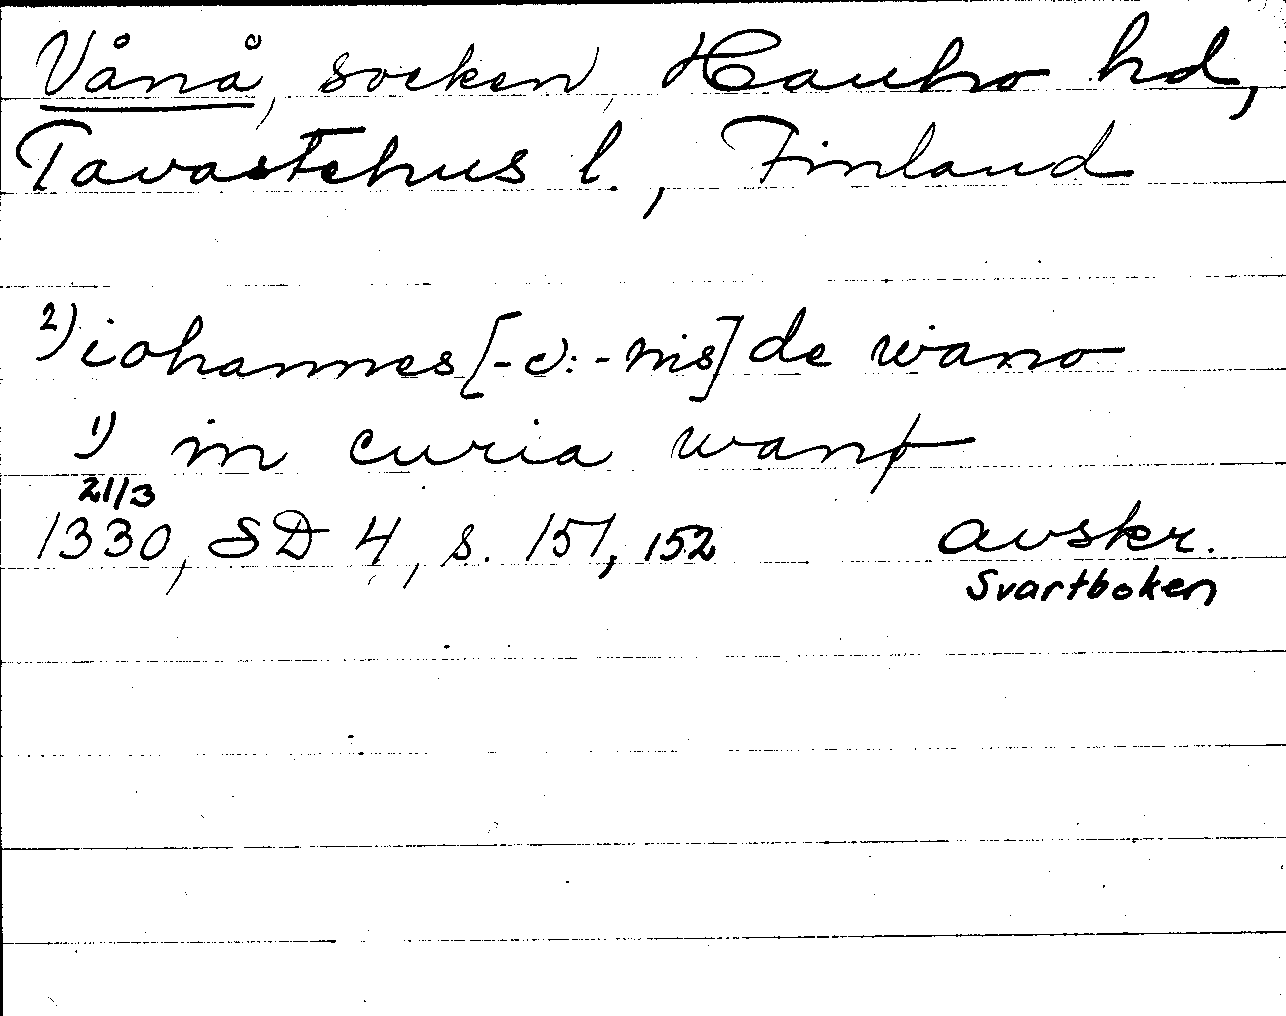 Vånå, socken, Hauho hd,
Tavastehus l., Finland
2) iohannes [-ɔ: -nis] de wano
1) in curia wanø
21/3
1330, SD 4, s. 151, 152 avskr.
Svartboken